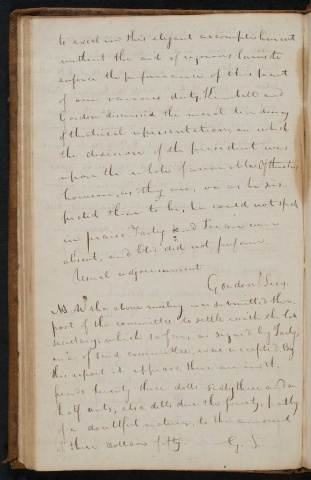 to excel in this elegant accomplishment
without the aid of rigorous laws to
enforce the performance of this part
of our various duty. Kimball and
Gordon discussed the moral tendency
of theatrical representations, on which
the decision of the president was
upon the whole favorable. Of theatres,
however, as they are, or as he sus
pected them to be, he could not speak
in praise. Farley and were
absent, and Otis did not perform.
Usual adjournment.
Gordon Secy.
NB. At the above meeting was submitted the re
port of the committee to settle with the late
secretary, which so far, as signed by Farley
one of said committee, was accepted. By
this report it appears, there are in the
funds twenty three dolls. sixty three and an
half cents, also debts due the society, partly
of a doubtful nature, to the amount
of three dollars fifty. G. S.